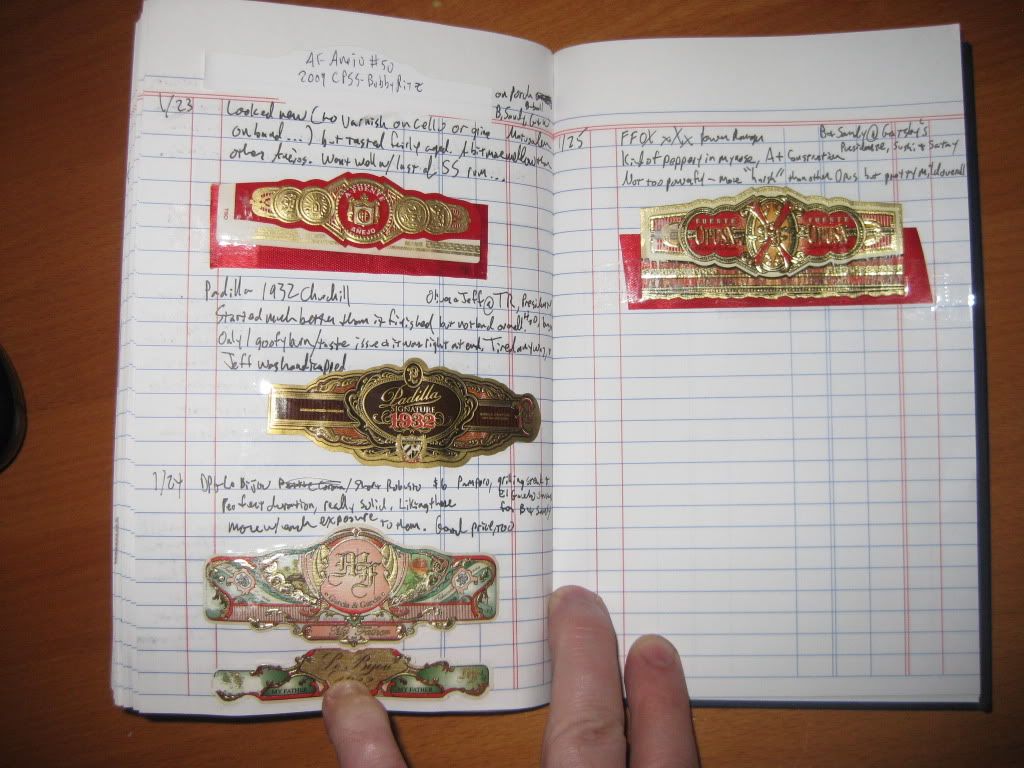 AF Anejo #50
2009 CPSS - Bobby
1/23
Looked new (no varnish on cello or
on band...) but tasted fairly aged. A bit more mellow than
other Anejos. Went well w/ last of SS rum...
on porch
B, Sandy,
Matusalem
A. FUENTE
AÑEJO
Padilla 1932 Churchill
Jeff @ TR, Presidente
Started much better than it finished but not bad overall
Only 1 goofy burn/taste issue it was right at end. Tired anyway,
Jeff was handicapped
Padilla
SIGNATURE
1932
1/24 DPG Le Bijou Robusto $6 Pampero, grilling steak +
Perfect duration, really solid, Liking these
for B + Sandy
more w/ each exposure to them. Good price, too
MF
Garcia & Garcia
Le Bijou
MY FATHER MY FATHER
1/25 FFOX xXx Power Ranger
B + Sandy @ Gatsby's
Presidente, Sushi +
Kind of peppery in my nose, A+ construction
Not too powerful - more "harsh" than other Opus but pretty mild overall
FUENTE FUENTE
OPUS X OPUS X